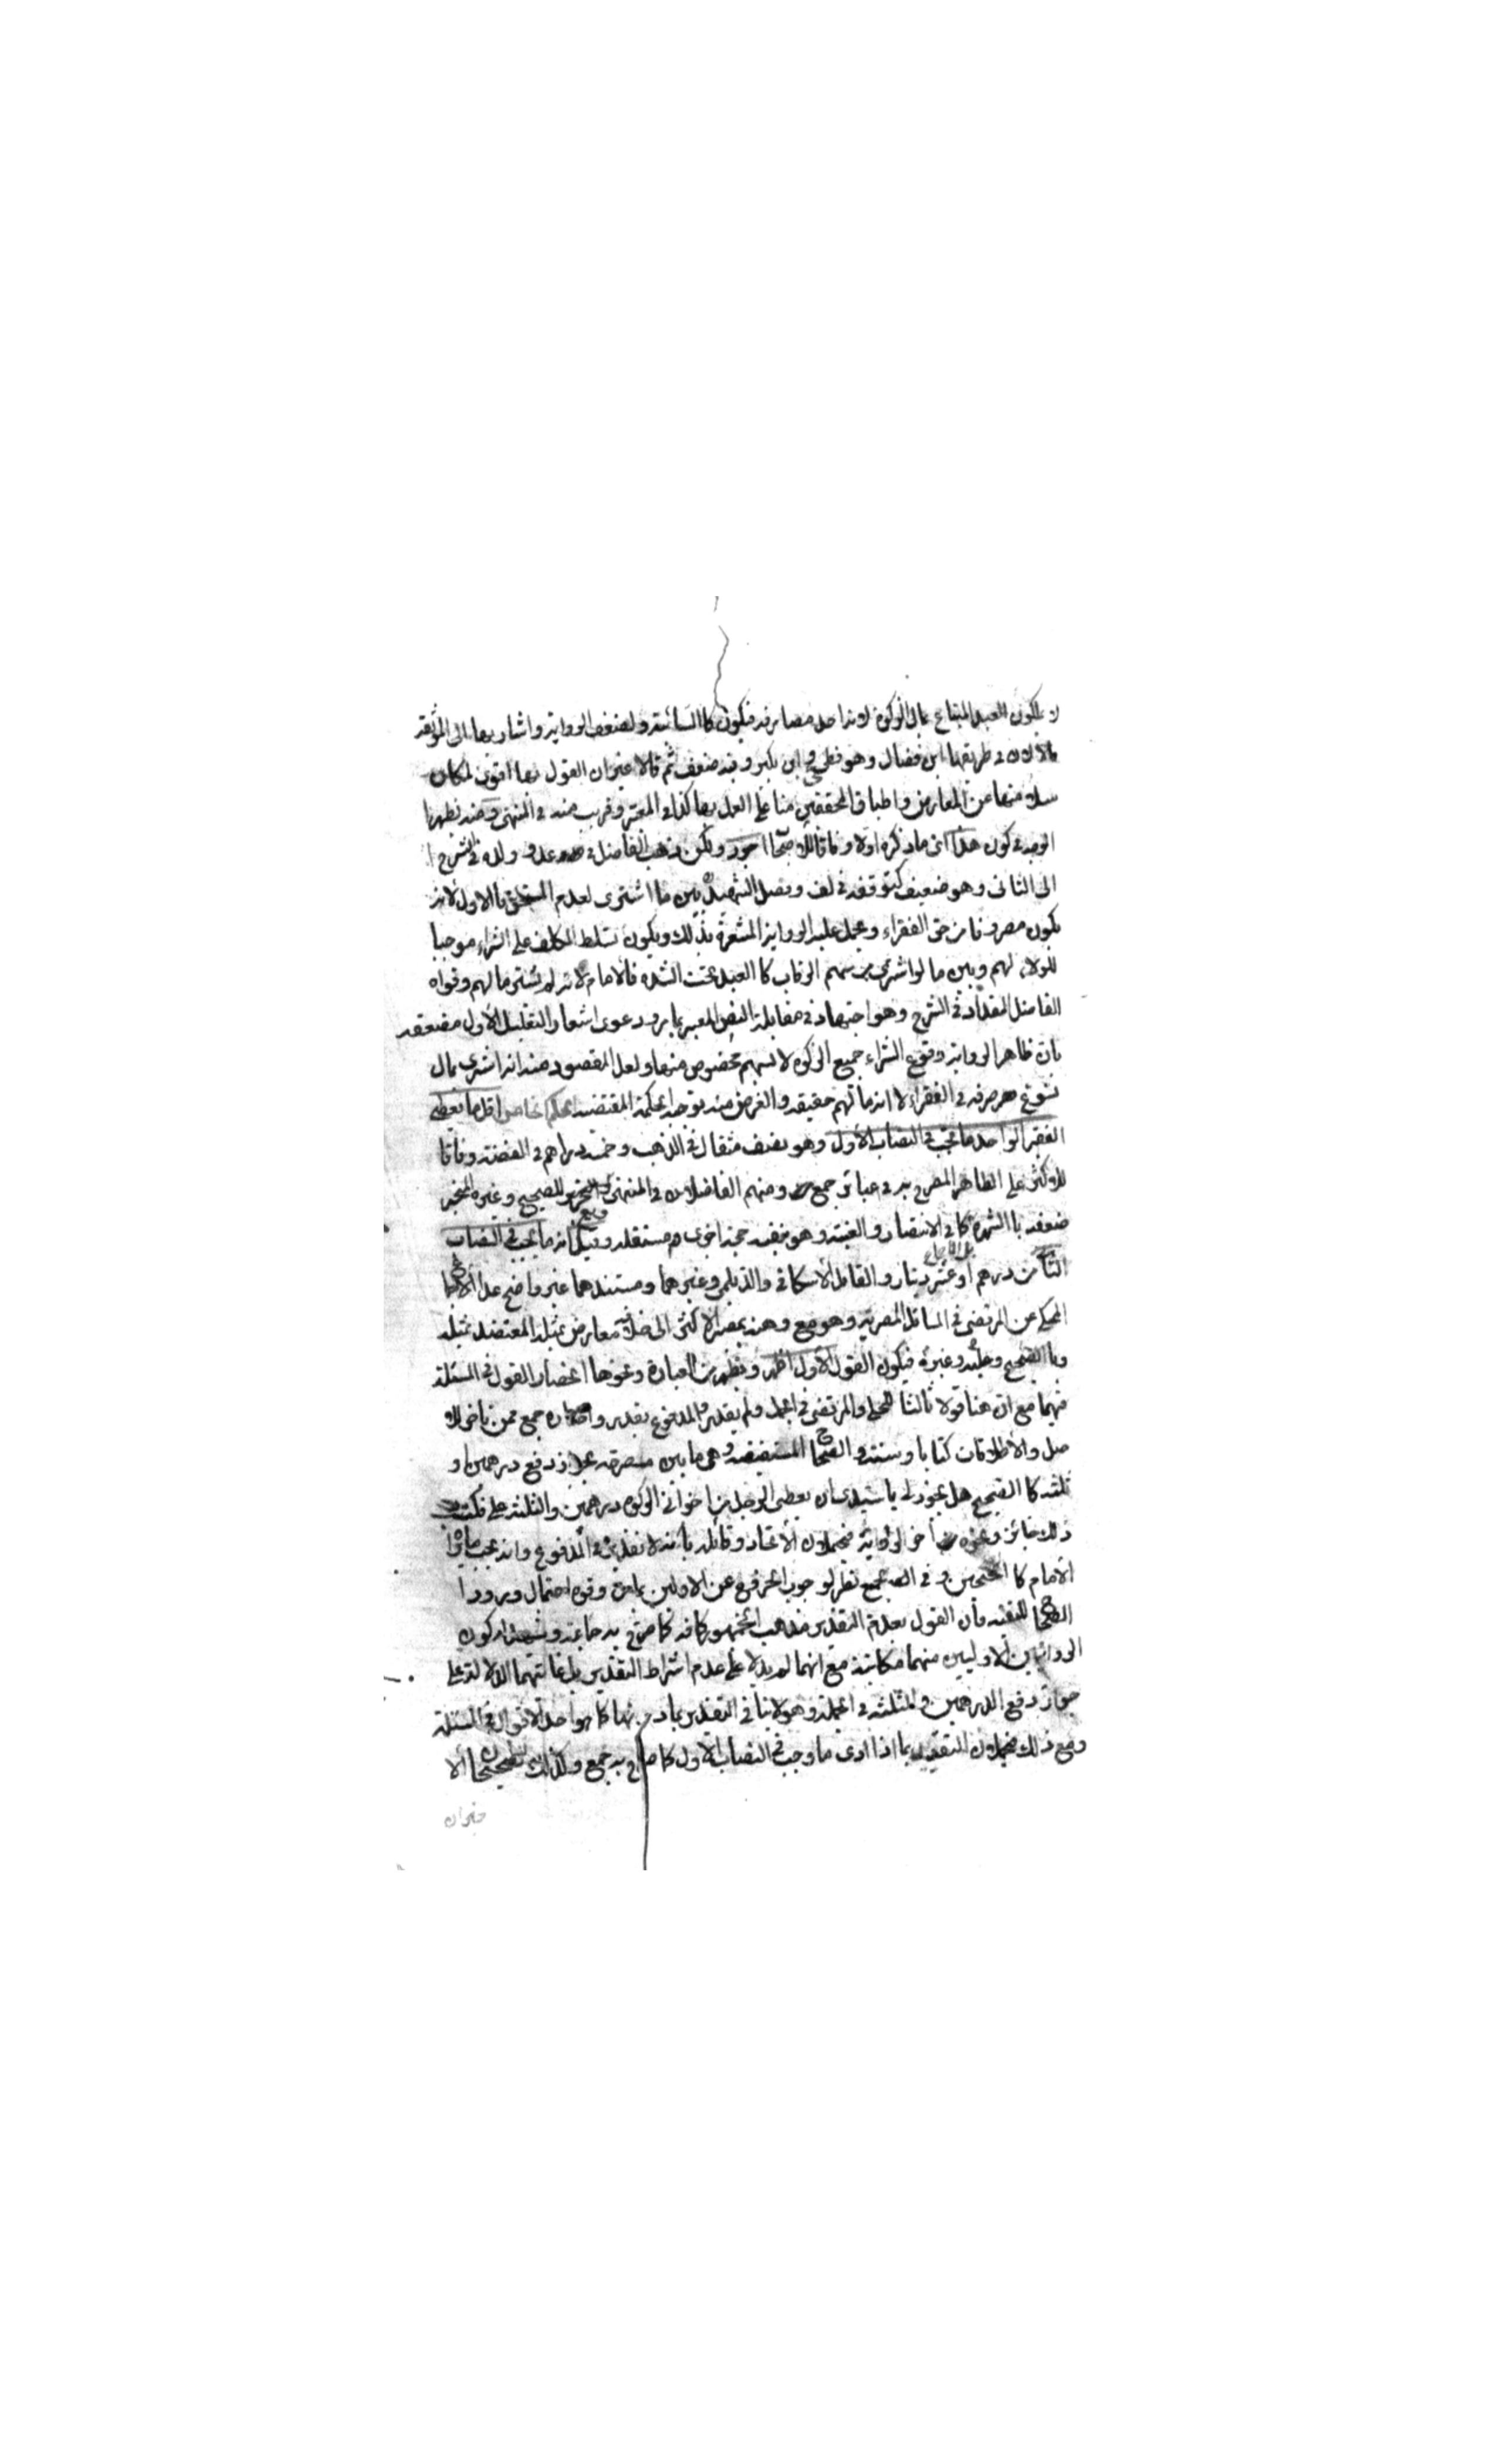 لا يملكون العبد المبتاع بمال الزكوة لانه احد مصارفه فيكون كالسائبة ولضعف الرواية واشار بها الى الموثقة
قال لان في طريقها ابن فضال وهو فطحي وابن بكير وفيه ضعف ثم قالا غير ان القول بها اقوى لمكان
سلامتها عن المعارض واطباق المحققين منا على العمل بها كذا في المعتبر وقريب منه في المنتهى ومنه يظهر
الوجه في كون هذا اي ما ذكره اولا وفاقا للاصحاب اجود ولكن ذهب الفاضل في عد وولده في الشرح
الى الثاني وهو ضعيف كتوقفه في لف وفصل الشهيد بين ما اشترى لعدم المستحق فالاول لانه
يكون مصروفا من حق الفقراء ويحمل عليه الرواية المشعرة بذلك ويكون تسلط المكلف على الشراء موجبا
للولاء لهم وبين ما لو اشترى من سهم الرقاب كالعبد تحت الشدة فالامام لانه لم يشتر بمالهم وقواه
الفاضل المقداد في الشرح وهو اجتهاد في مقابلة النص المعبر بما مر ودعوى اشعار التعليل الاول مضعفه
بان ظاهر الرواية وقوع الشراء بجميع الزكوة لا بسهم مخصوص منها ولعل المقصود منه انه اشترى بمال
يسوغ صرفه في الفقراء لا انه مالهم حقيقة والغرض منه توجيه الحكمة المقتضية اقل ما يعطى
الفقير الواحد ما يجب في النصاب الاول وهو نصف مثقال في الذهب وخمسة دراهم في الفضة وفاقا
للاكثر على الظاهر المصرح به في عبائر جمع ومنهم الفاضلان في المنتهى والتحرير للصحيح وغيره المنجبر
ضعفه بالشهرة كما في الانتصار والغنية وهو بنفسه حجة اخرى مستقلة وقيل انه ما يجب في النصاب
الثاني من درهم او عشر دينار والقائل الاسكافي والديلمي وغيرهما ومستندهما غير واضح عدا الاجماع
المحكي عن المرتضى في المسائل المصرية وهو مع وهنه بمصير الاكثر الى خلافه معارض بمثله المعتضد بمثله
وبالصحيح وغيره فيكون القول الاول اظهر ويظهر من العبارة ونحوها انحصار القول في المسئلة
فيهما مع ان هنا قولا ثالثا للحلي والمرتضى في الجمل ولم يقدر المدفوع بقدر واختاره جمع ممن تاخر للا
صل والاطلاقات كتابا وسنة والصحاح المستفيضة وهي ما بين مصرحة بجواز دفع درهمين او
ثلثة كالصحيح هل يجوز لي يا سيدي ان يعطي الرجل من اخواني الزكوة درهمين والثلثة على فكتب
ذلك جائز اخر الرواية فيحملان الاتحاد وقائله بانه لا تقدير في المدفوع وانه يجب ما يراه
الامام كالحسنين وفي الجميع نظر لوجوب الخروج عن الاولين بما مر وقوة احتمال ورود
الصحاح للتقية فان القول بعدم التقدير مذهب الجمهور كافة كما صرح به جماعة ويشهد له كون
الروايتين الاوليين منهما مكاتبة مع انهما لم يدلا على عدم اشتراط التقدير بل غايتهما الدلالة على
جواز دفع الدرهمين والثلثة في الجملة وهو لا ينافي التقدير بما دونها كما هو احد الاقوال في المسئلة
ومع ذلك فيحملان التقييد بما اذا ادى ما وجب في النصاب الاول كما صرح به جمع وكذلك الا
خيران